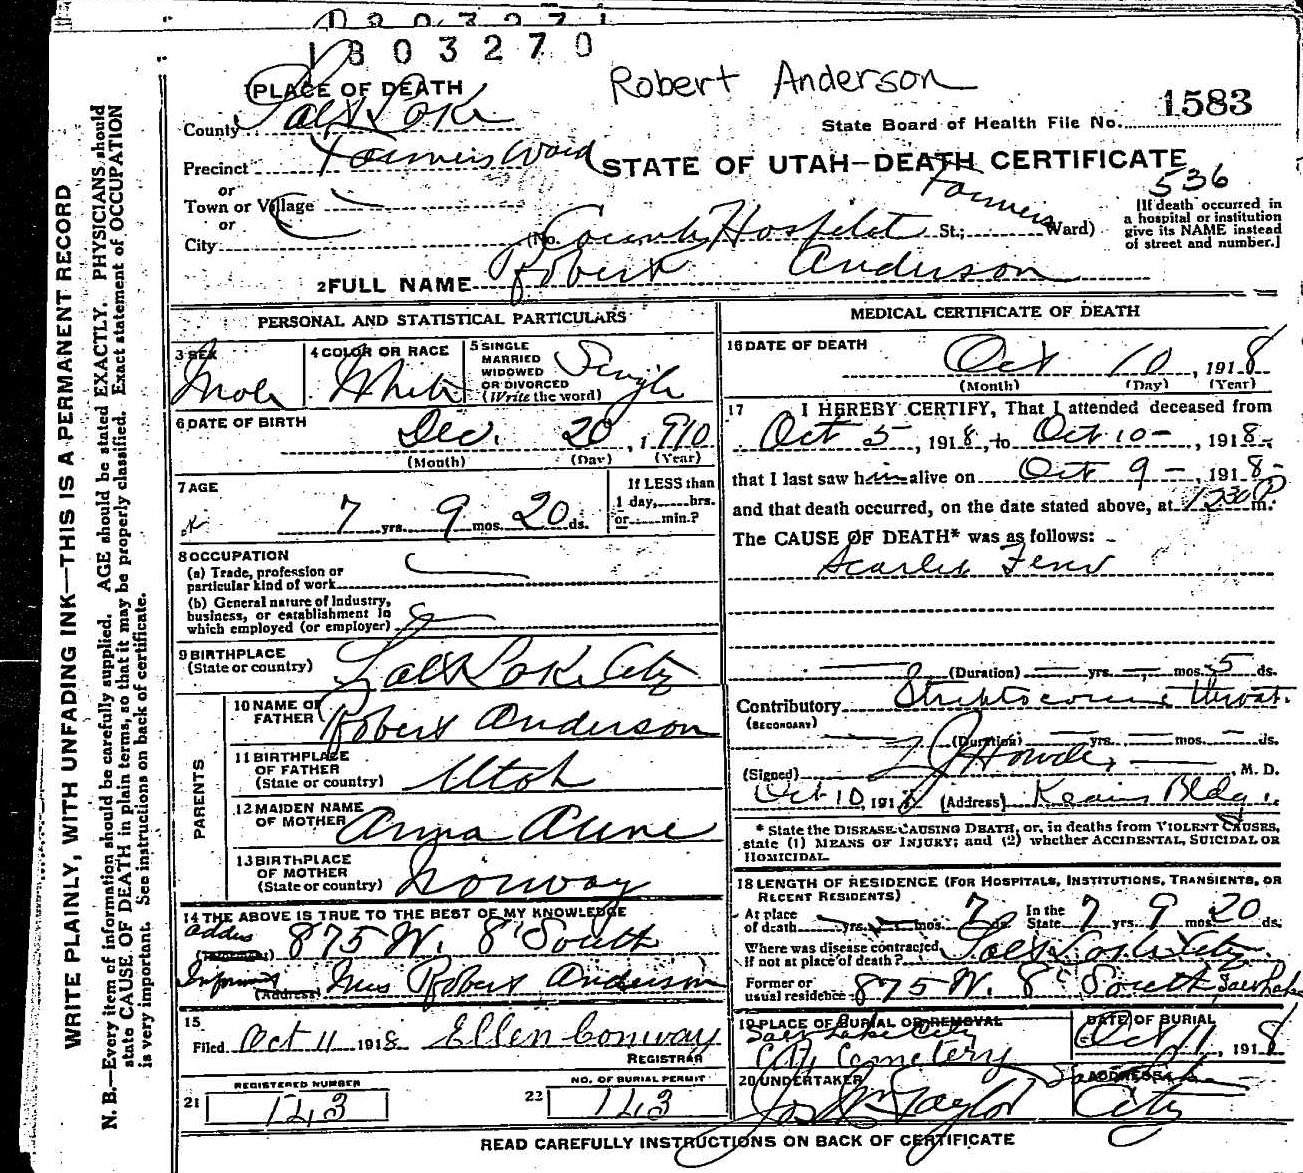 1803270
Robert Anderson
1583
PLACE OF DEATH
County Salt Lake
State Board of Health File No.
Precinct Farmers Ward
STATE OF UTAH—DEATH CERTIFICATE
536
or
Town or Village
or
City (No. County Hospital St.; Farmers Ward)
[If death occurred in
a hospital or institution
give its NAME instead
of street and number.]
2 FULL NAME Robert Anderson
PERSONAL AND STATISTICAL PARTICULARS
3 SEX Male
4 COLOR OR RACE White
5 SINGLE
MARRIED
WIDOWED
OR DIVORCED
(Write the word) Single
6 DATE OF BIRTH Dec. 20, 1910
(Month) (Day) (Year)
7 AGE
7 yrs. 9 mos. 20 ds.
If LESS than
1 day, hrs.
or min.?
8 OCCUPATION
(a) Trade, profession or
particular kind of work
(b) General nature of Industry,
business, or establishment in
which employed (or employer)
9 BIRTHPLACE
(State or country) Salt Lake City
PARENTS
10 NAME OF
FATHER Robert Anderson
11 BIRTHPLACE
OF FATHER
(State or country) Utah
12 MAIDEN NAME
OF MOTHER Anna Aune
13 BIRTHPLACE
OF MOTHER
(State or country) Norway
14 THE ABOVE IS TRUE TO THE BEST OF MY KNOWLEDGE
Addres 875 W. 8 South
Informant Mrs Robert Anderson
(Address)
15
Filed Oct 11 1918 Ellen Conway
REGISTRAR
REGISTERED NUMBER
21 143
NO. OF BURIAL PERMIT
22 143
MEDICAL CERTIFICATE OF DEATH
16 DATE OF DEATH Oct 10, 1918
(Month) (Day) (Year)
17 I HEREBY CERTIFY, That I attended deceased from
Oct 5, 1918, to Oct 10, 1918
that I last saw him alive on Oct 9, 1918
and that death occurred, on the date stated above, at 1230 P m.
The CAUSE OF DEATH* was as follows:
Scarlet Fever
(Duration) yrs. mos. 5 ds.
Contributory Streptococcus throat
(SECONDARY)
(Duration) yrs. mos. ds.
(Signed) M. D.
Oct 10, 1918 (Address) Kearns Bldg.
* State the DISEASE CAUSING DEATH, or, in deaths from VIOLENT CAUSES,
state (1) MEANS OF INJURY; and (2) whether ACCIDENTAL, SUICIDAL OR
HOMICIDAL.
18 LENGTH OF RESIDENCE (FOR HOSPITALS, INSTITUTIONS, TRANSIENTS, OR
RECENT RESIDENTS)
At place
of death yrs. mos. ds. In the
State 7 yrs. 9 mos. 20 ds.
Where was disease contracted,
If not at place of death? Salt Lake City
Former or
usual residence 875 W. 8 South Salt Lake
19 PLACE OF BURIAL OR REMOVAL
Salt Lake City
City Cemetery
DATE OF BURIAL
Oct 11, 1918
20 UNDERTAKER
Jos Wm Taylor
ADDRESS
Salt Lake
City
READ CAREFULLY INSTRUCTIONS ON BACK OF CERTIFICATE
WRITE PLAINLY, WITH UNFADING INK—THIS IS A PERMANENT RECORD
N. B.—Every item of information should be carefully supplied. AGE should be stated EXACTLY. PHYSICIANS should
state CAUSE OF DEATH in plain terms, so that it may be properly classified. Exact statement of OCCUPATION
is very important. See instructions on back of certificate.